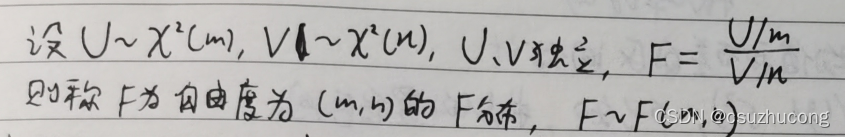 设 U~χ²(m), V~χ²(n), U、V独立, F = (U/m)/(V/n)
则称 F为自由度为 (m,n) 的 F分布, F~F(m,n)
CSDN @csuzhucong